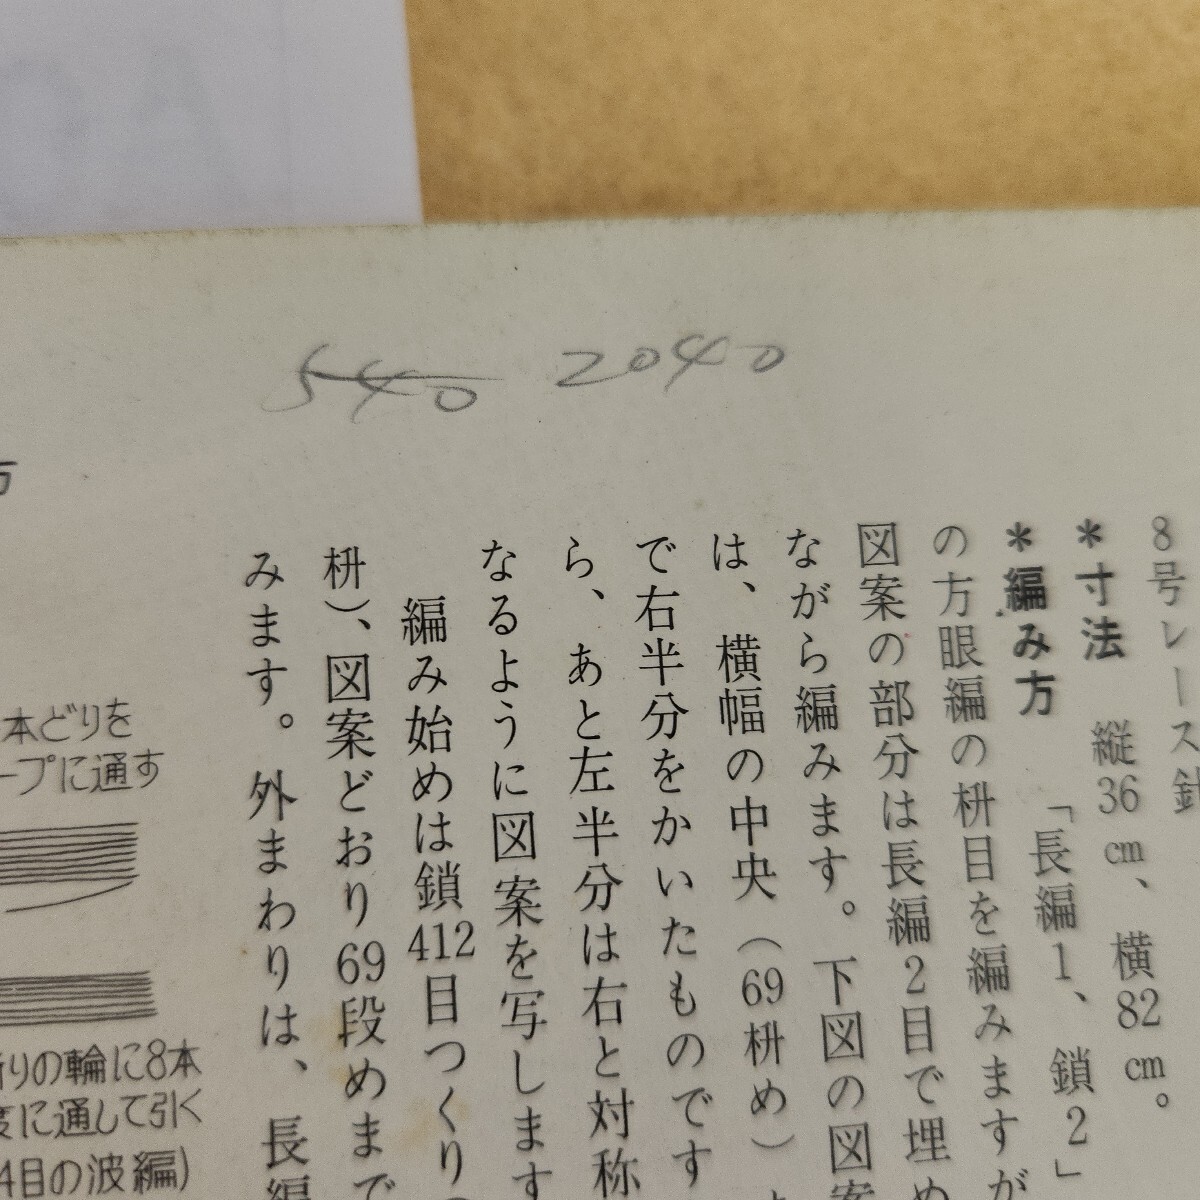 540 2040
8号レース針
*寸法 縦36cm、横82cm。
*編み方 「長編1、鎖2」
の方眼編の枡目を編みますが
図案の部分は長編2目で埋め
ながら編みます。下図の図案
は、横幅の中央（69枡め）
で右半分をかいたものです
ら、あと左半分は右と対称
なるように図案を写します
編み始めは鎖412目つくり
枡）、図案どおり69段めまで
みます。外まわりは、長編
方
本どりを
ープに通す
りの輪に8本
度に通して引く
4目の波編)